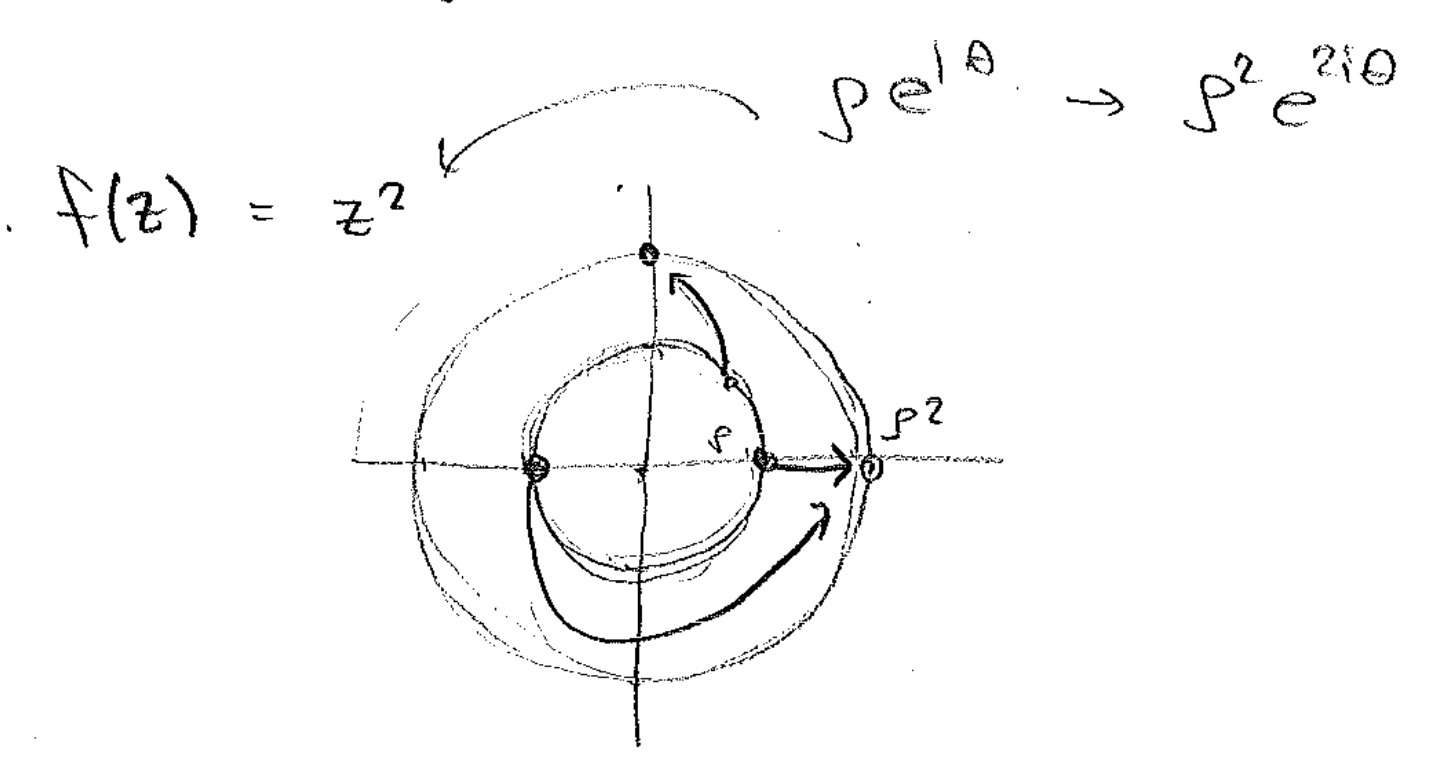 ρe^{iθ} → ρ² e^{2iθ}
. f(z) = z²
ρ²
ρ